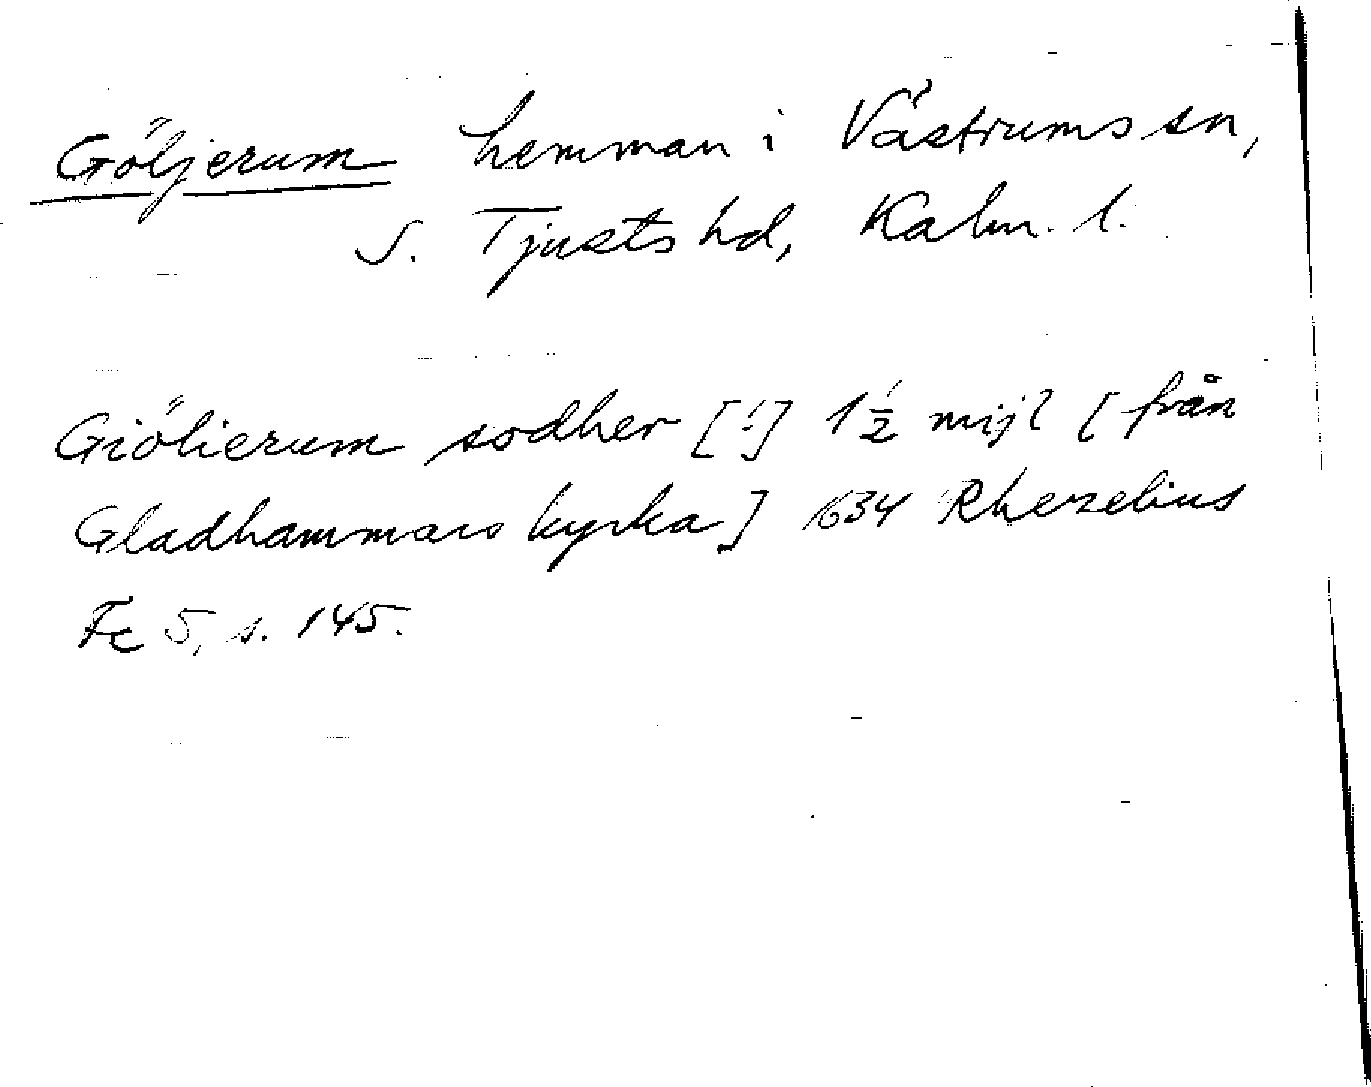 Göljerum hemman i Västrums sn,
S. Tjusts hd, Kalm. l.
Giölierum sodher [!] 1½ mijl [från
Gladhammars kyrka] 1634 Rhezelius
Fc 5, s. 145.